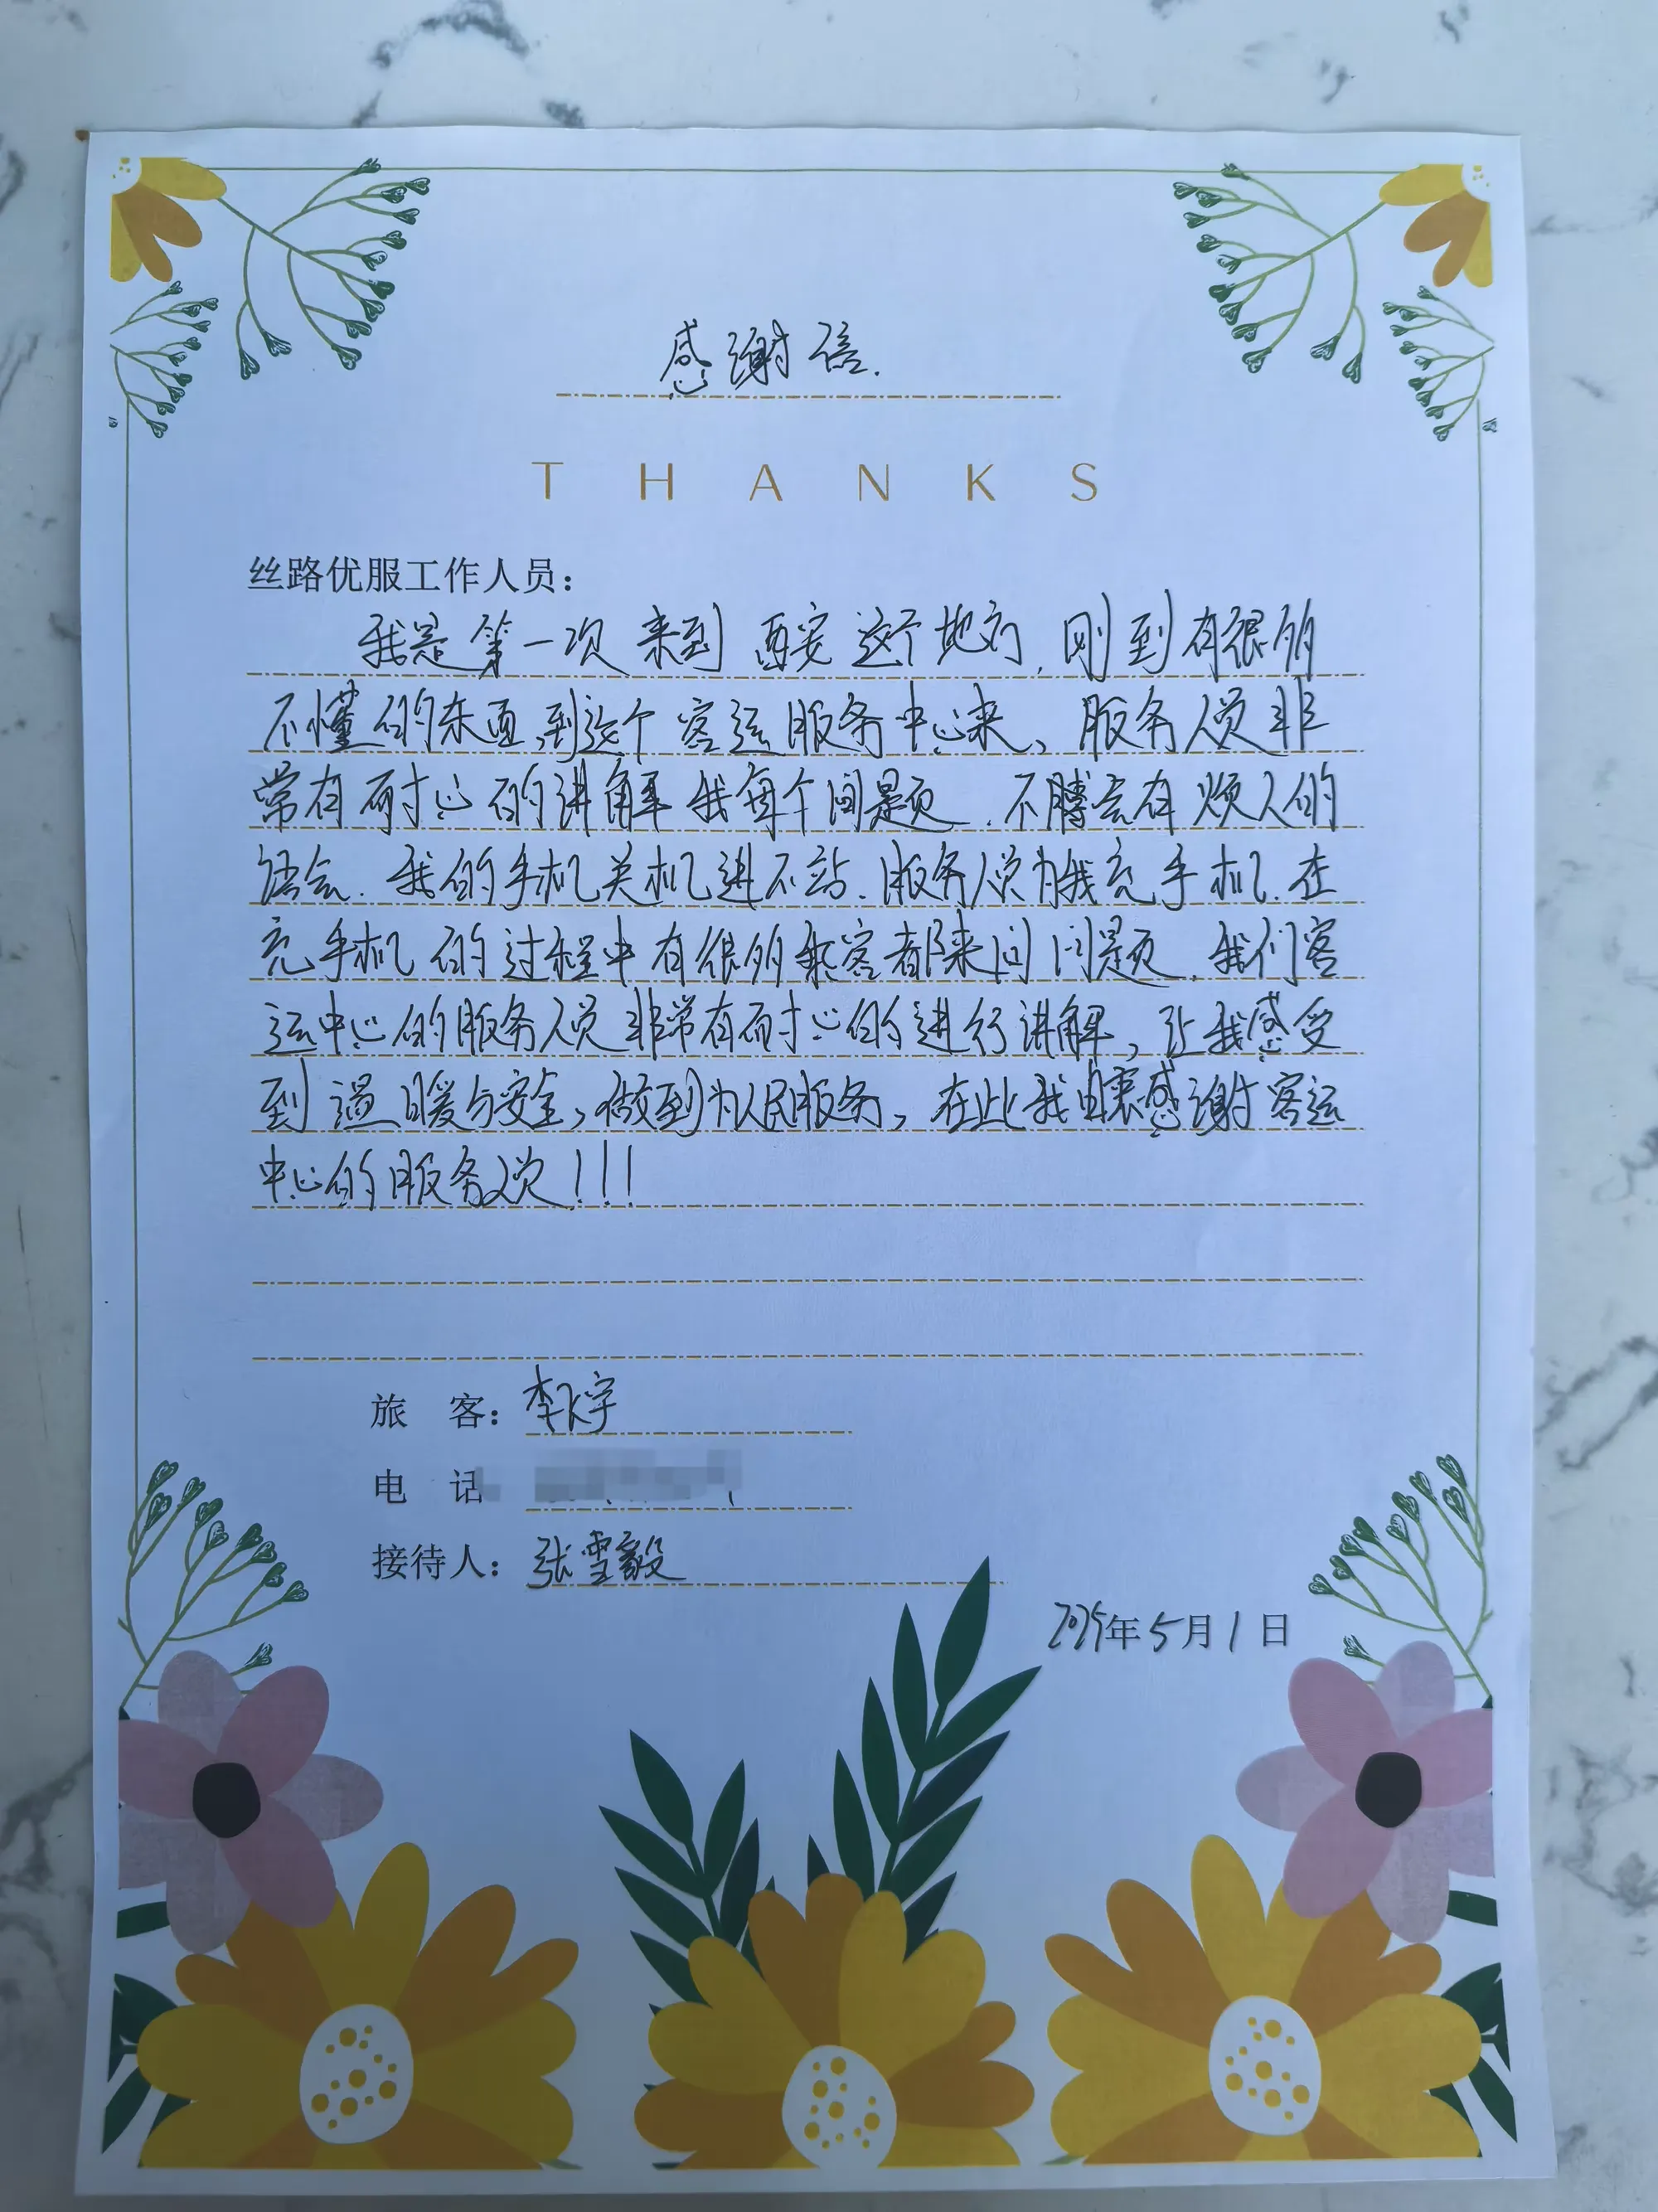 感谢信.
THANKS
丝路优服工作人员：
我是第一次来到西安这个地方,刚到有很多
不懂的东西,到这个客运服务中心来、服务人员非
常有耐心的讲解我每个问题.不会有烦人的
语会.我的手机关机进不站.服务人员为我充手机.在
充手机的过程中有很多乘客都来问问题.我们客
运中心的服务人员非常有耐心的进行讲解,让我感受
到温暖与安全,做到为人民服务,在此我由衷感谢客运
中心的服务人员!!!
旅 客：李飞宇
电 话
接待人：张雪毅
2025年5月1日